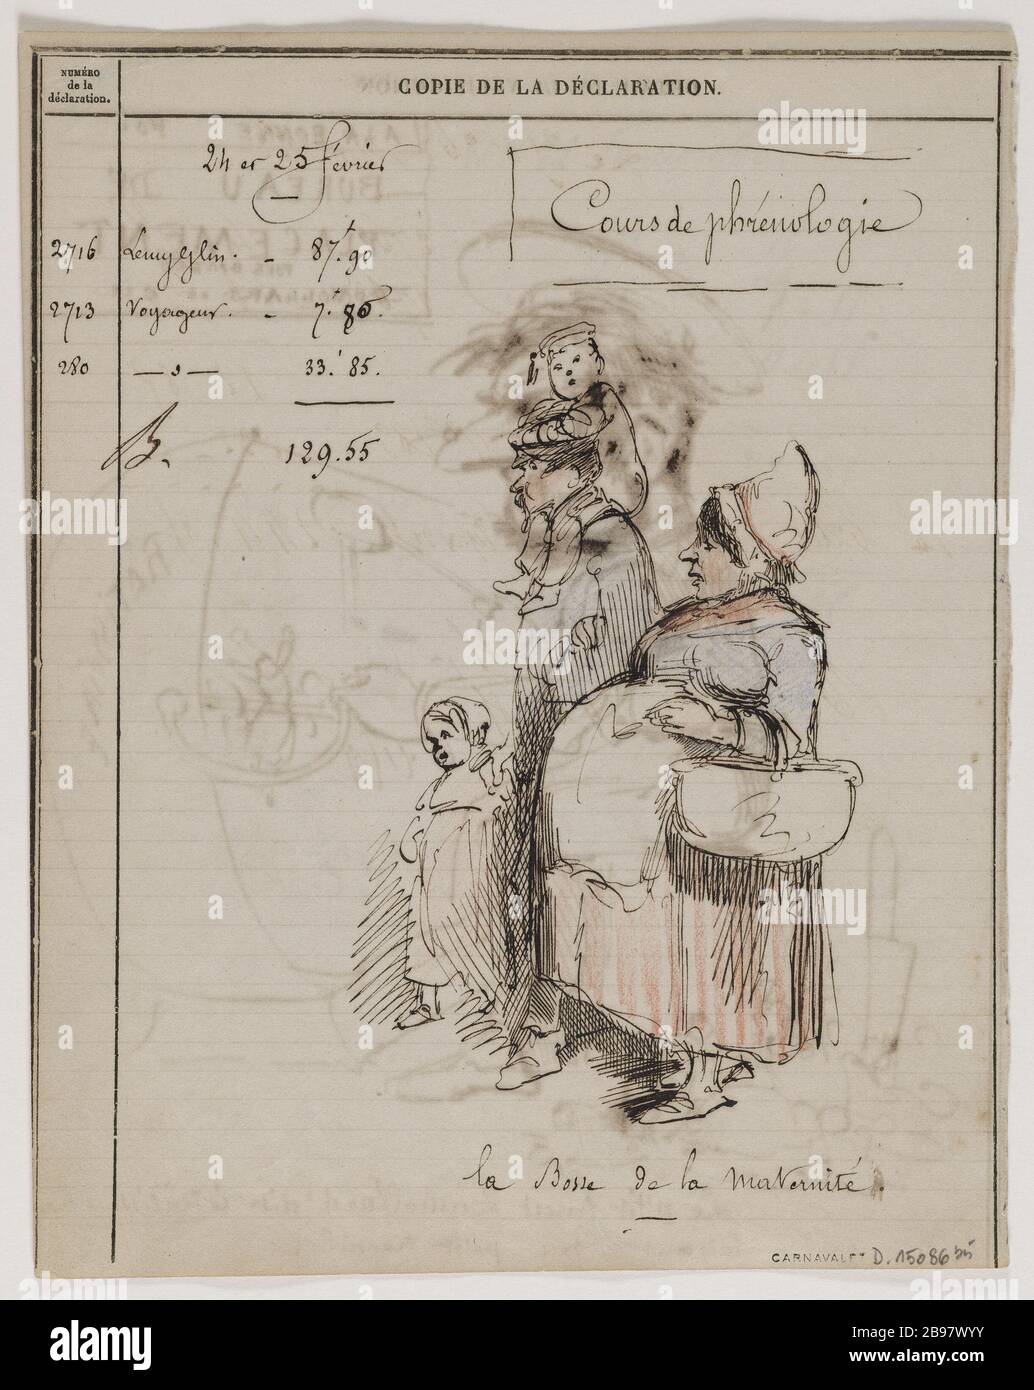 NUMÉRO
de la
déclaration.
COPIE DE LA DÉCLARATION.
24 et 25 février
Cours de phrénologie
2716 - 87f.90
2713 Voyageur. - 7f.80.
280 33f.85.
B. 129.55
la Bosse de la Maternité.
CARNAVALET D.15086 bis
alamy
Image ID: 2B97WYY
www.alamy.com